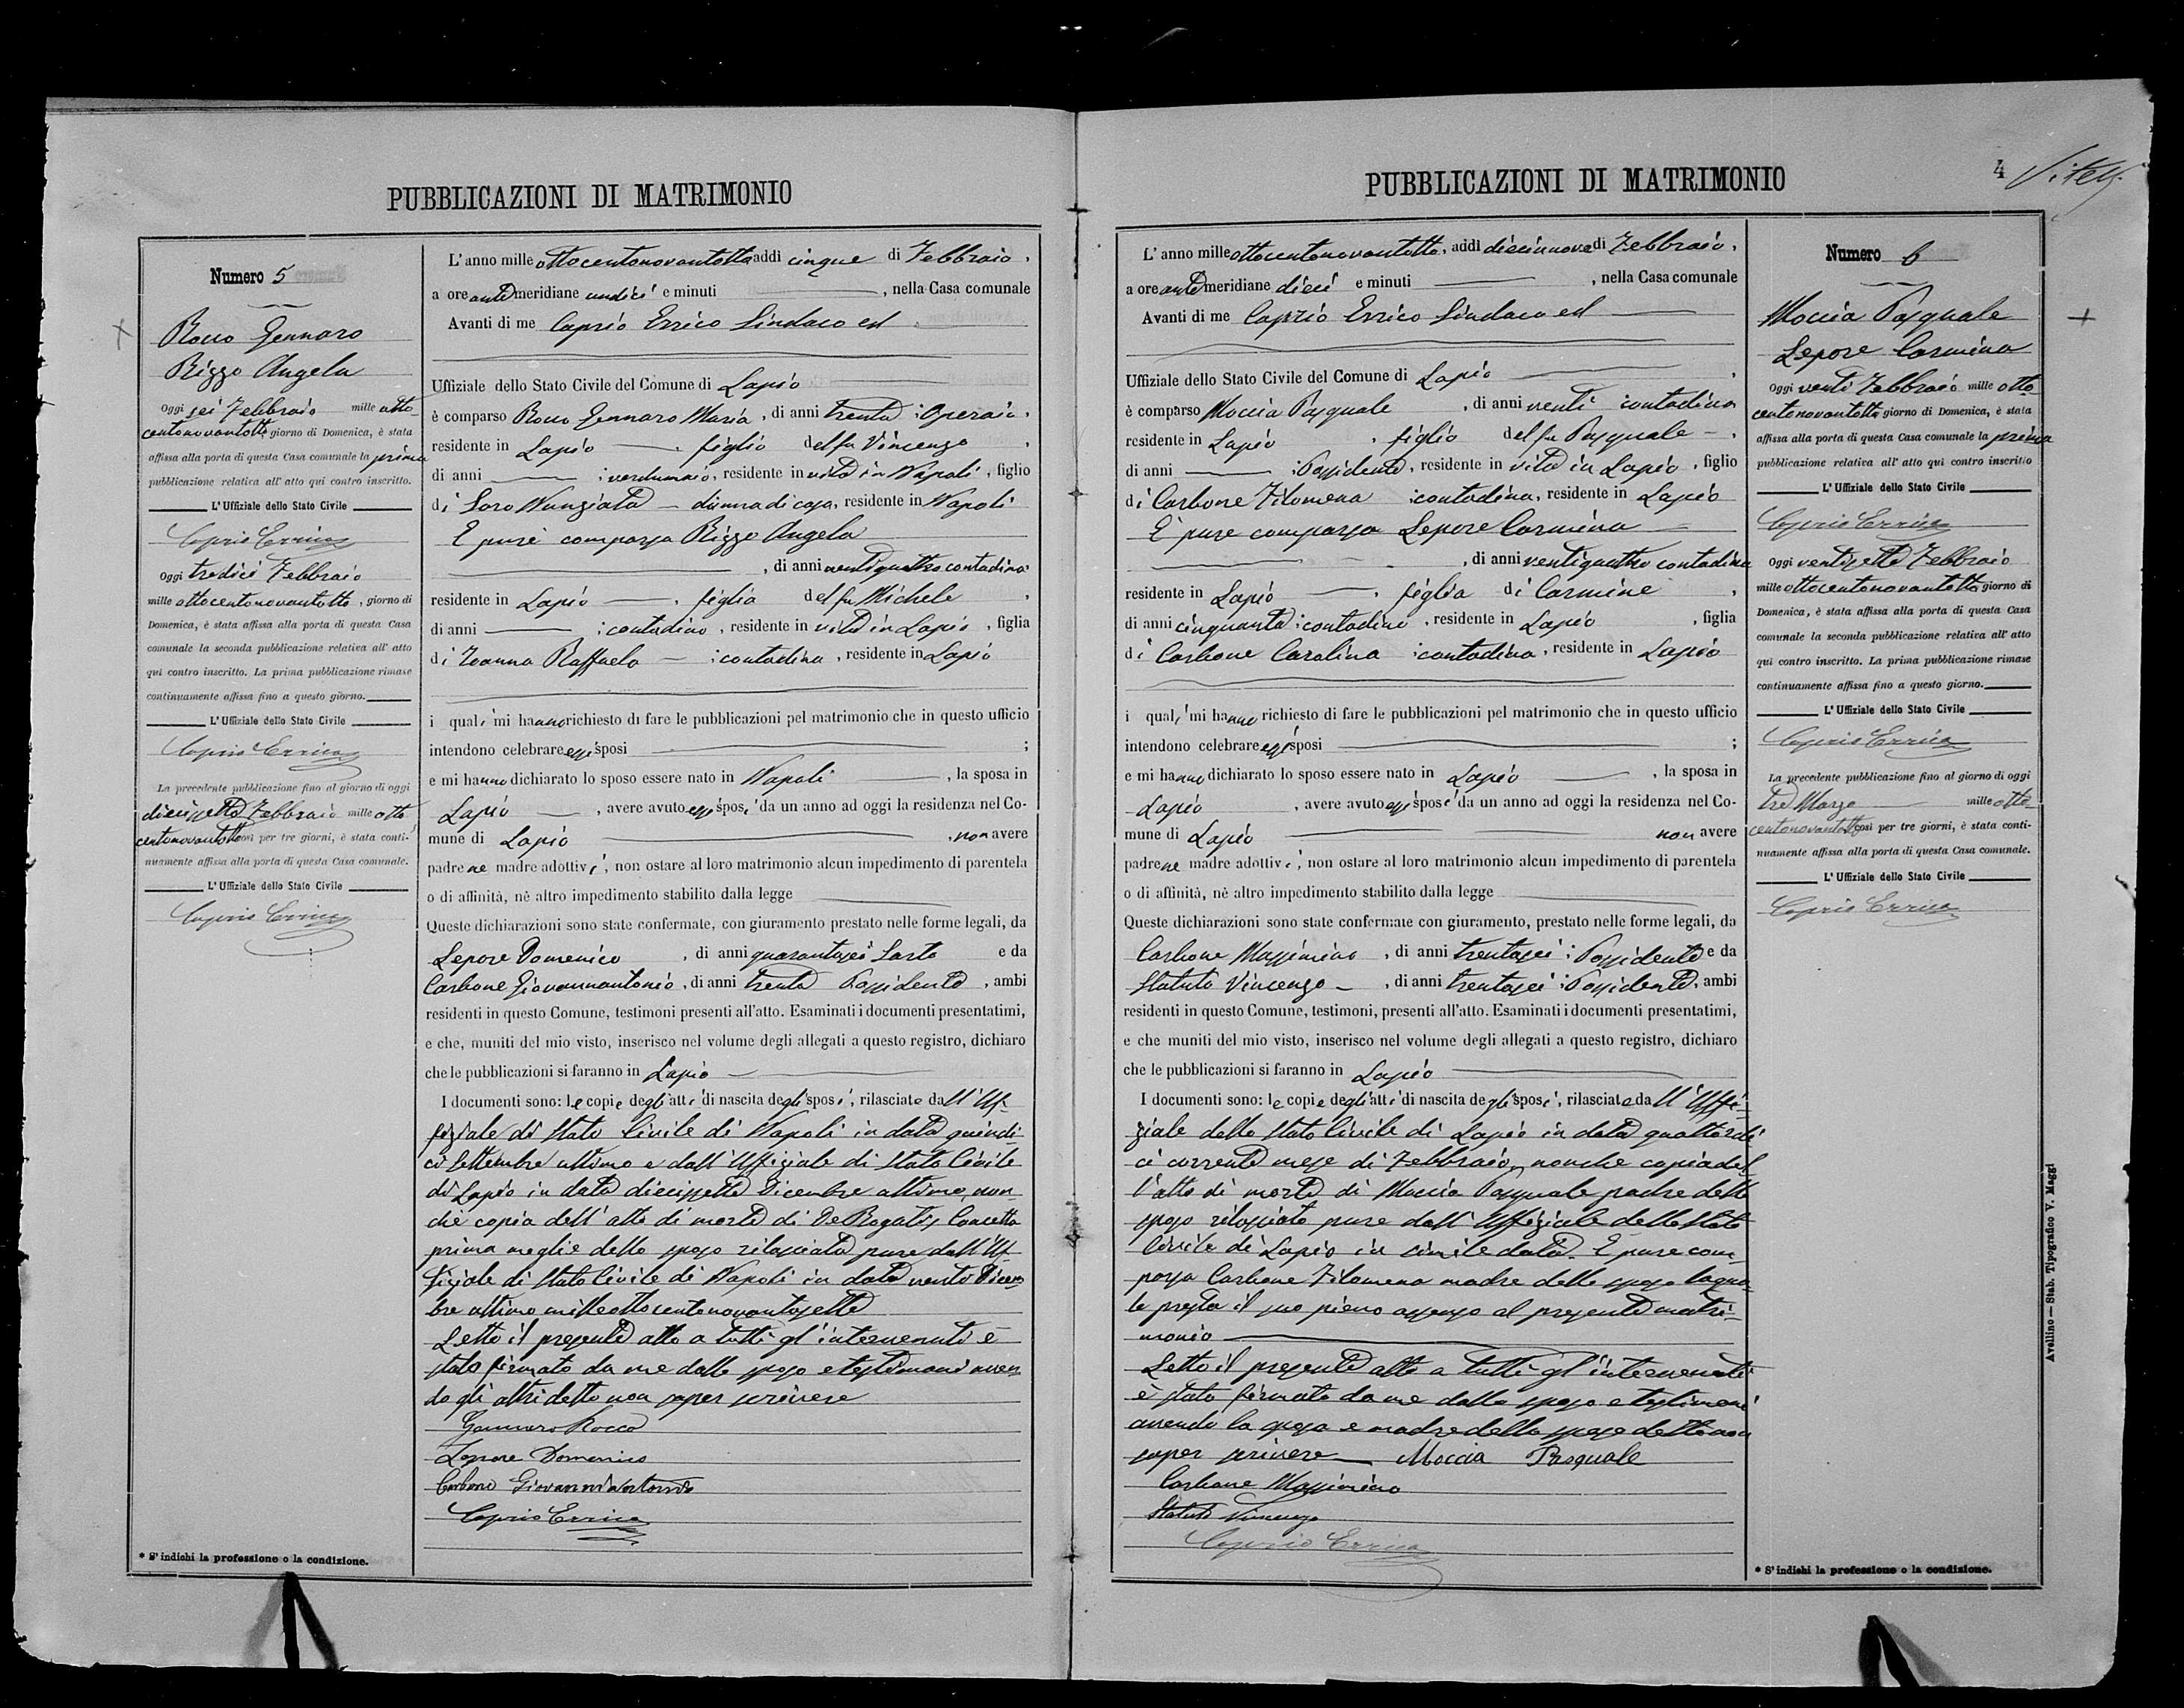 PUBBLICAZIONI DI MATRIMONIO
Numero 5
Rocco Gennaro
Rizzo Angela
Oggi sei Febbraio mille otto-
centonovantotto giorno di Domenica, è stata
affissa alla porta di questa Casa comunale la prima
pubblicazione relativa all' atto qui contro inscritto.
L' Uffiziale dello Stato Civile
Caprio Errico
Oggi tredici Febbraio
mille ottocentonovantotto, giorno di
Domenica, è stata affissa alla porta di questa Casa
comunale la seconda pubblicazione relativa all' atto
qui contro inscritto. La prima pubblicazione rimase
continuamente affissa fino a questo giorno.
L' Uffiziale dello Stato Civile
Caprio Errico
La precedente pubblicazione fino al giorno di oggi
diecissette Febbraio mille otto
centonovantotto così per tre giorni, è stata conti-
nuamente affissa alla porta di questa Casa comunale.
L' Uffiziale dello Stato Civile
Caprio Errico
* S' indichi la professione o la condizione.
L' anno mille ottocentonovantotto addì cinque di Febbraio,
a ore ante meridiane undici e minuti , nella Casa comunale
Avanti di me Caprio Errico Sindaco ed
Uffiziale dello Stato Civile del Comune di Lapio
è comparso Rocco Gennaro Maria, di anni trenta : Operaio,
residente in Lapio , figlio del fu Vincenzo ,
di anni : verdumaio, residente in vita in Napoli, figlio
di Soro Nunziata - donna di casa, residente in Napoli
E pure comparsa Rizzo Angela
, di anni ventiquattro contadina
residente in Lapio , figlia del fu Michele ,
di anni : contadino, residente in vita in Lapio, figlia
di Ioanna Raffaela - : contadina, residente in Lapio
i quali mi hanno richiesto di fare le pubblicazioni pel matrimonio che in questo ufficio
intendono celebrare essi sposi ;
e mi hanno dichiarato lo sposo essere nato in Napoli , la sposa in
Lapio , avere avuto essi sposi da un anno ad oggi la residenza nel Co-
mune di Lapio , non avere
padre ne madre adottivi, non ostare al loro matrimonio alcun impedimento di parentela
o di affinità, nè altro impedimento stabilito dalla legge
Queste dichiarazioni sono state confermate, con giuramento prestato nelle forme legali, da
Lepore Domenico , di anni quarantasei Sarto e da
Carbone Giovannantonio, di anni trenta Possidente, ambi
residenti in questo Comune, testimoni presenti all'atto. Esaminati i documenti presentatimi,
e che, muniti del mio visto, inserisco nel volume degli allegati a questo registro, dichiaro
che le pubblicazioni si faranno in Lapio
I documenti sono: le copie degli atti di nascita degli sposi, rilasciate dall' Uf-
fiziale di Stato Civile di Napoli in data quindi-
ci Settembre ultimo e dall' Uffiziale di Stato Civile
di Lapio in data diecissette Dicembre ultimo, non-
chè copia dell' atto di morte di De Rogatis Concetta
prima moglie dello sposo rilasciata pure dall' Uf-
fiziale di Stato Civile di Napoli in data venti Dicem
bre ultimo milleottocentonovantasette
Letto il presente atto a tutti gl' intervenuti è
stato firmato da me dallo sposo e testimoni aven
do gli altri detto non saper scrivere
Gennaro Rocco
Lepore Domenico
Carbone Giovannantonio
Caprio Errico
PUBBLICAZIONI DI MATRIMONIO
4
L' anno mille ottocentonovantotto, addì diecinnove di Febbraio,
a ore ante meridiane dieci e minuti , nella Casa comunale
Avanti di me Caprio Errico Sindaco ed
Uffiziale dello Stato Civile del Comune di Lapio ,
è comparso Moccia Pasquale , di anni venti contadino
residente in Lapio , figlio del fu Pasquale - ,
di anni : Possidente, residente in vita in Lapio, figlio
di Carbone Filomena : contadina, residente in Lapio
E' pure comparsa Lepore Carmina
, di anni ventiquattro contadina
residente in Lapio , figlia di Carmine ,
di anni cinquanta : contadino, residente in Lapio , figlia
di Carbone Carolina : contadina, residente in Lapio
i quali mi hanno richiesto di fare le pubblicazioni pel matrimonio che in questo ufficio
intendono celebrare essi sposi ;
e mi hanno dichiarato lo sposo essere nato in Lapio , la sposa in
Lapio , avere avuto essi sposi da un anno ad oggi la residenza nel Co-
mune di Lapio non avere
padre ne madre adottivi, non ostare al loro matrimonio alcun impedimento di parentela
o di affinità, nè altro impedimento stabilito dalla legge
Queste dichiarazioni sono state confermate con giuramento, prestato nelle forme legali, da
Carbone Massimino , di anni trentasei : Possidente e da
Statuto Vincenzo - , di anni trentasei : Possidente, ambi
residenti in questo Comune, testimoni, presenti all'atto. Esaminati i documenti presentatimi,
e che muniti del mio visto, inserisco nel volume degli allegati a questo registro, dichiaro
che le pubblicazioni si faranno in Lapio
I documenti sono: le copie degli atti di nascita degli sposi, rilasciate dall' Uffi-
ziale dello Stato Civile di Lapio in data quattordi
ci corrente mese di Febbraio, nonche copia del
l'atto di morte di Moccia Pasquale padre dello
sposo rilasciato pure dall' Uffiziale dello Stato
Civile di Lapio in simile data. E pure com
parsa Carbone Filomena madre dello sposo la qua-
le presta il suo pieno assenso al presente matri-
monio
Letto il presente atto a tutti gl' intervenuti
è stato firmato da me dallo sposo e testimoni
avendo la sposa e madre dello sposo detto non
saper scrivere Moccia Pasquale
Carbone Massimino
Statuto Vincenzo
Caprio Errico
Numero 6
Moccia Pasquale
Lepore Carmina
Oggi venti Febbraio mille otto-
centonovantotto giorno di Domenica, è stata
affissa alla porta di questa Casa comunale la prima
pubblicazione relativa all' atto qui contro inscritto
L' Uffiziale dello Stato Civile
Caprio Errico
Oggi ventisette Febbraio
mille ottocentonovantotto giorno di
Domenica, è stata affissa alla porta di questa Casa
comunale la seconda pubblicazione relativa all' atto
qui contro inscritto. La prima pubblicazione rimase
continuamente affissa fino a questo giorno.
L' Uffiziale dello Stato Civile
Caprio Errico
La precedente pubblicazione fino al giorno di oggi
tre Marzo mille otto-
centonovantotto così per tre giorni, è stata conti-
nuamente affissa alla porta di questa Casa comunale.
L' Uffiziale dello Stato Civile
Caprio Errico
* S' indichi la professione o la condizione.
Avellino — Stab. Tipografico V. Maggi